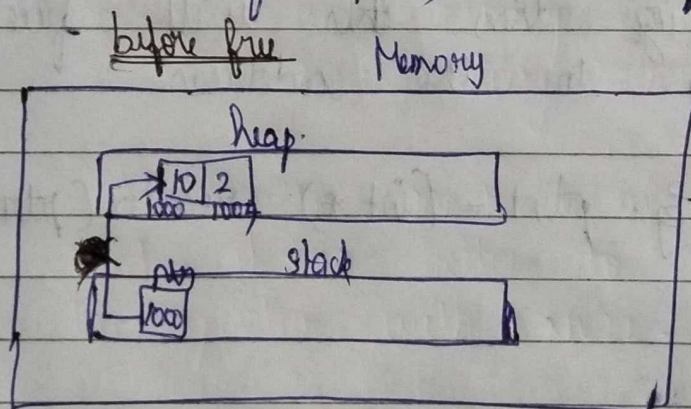 before free
Memory
heap.
10 2
1000 1004
stack
ptr
1000